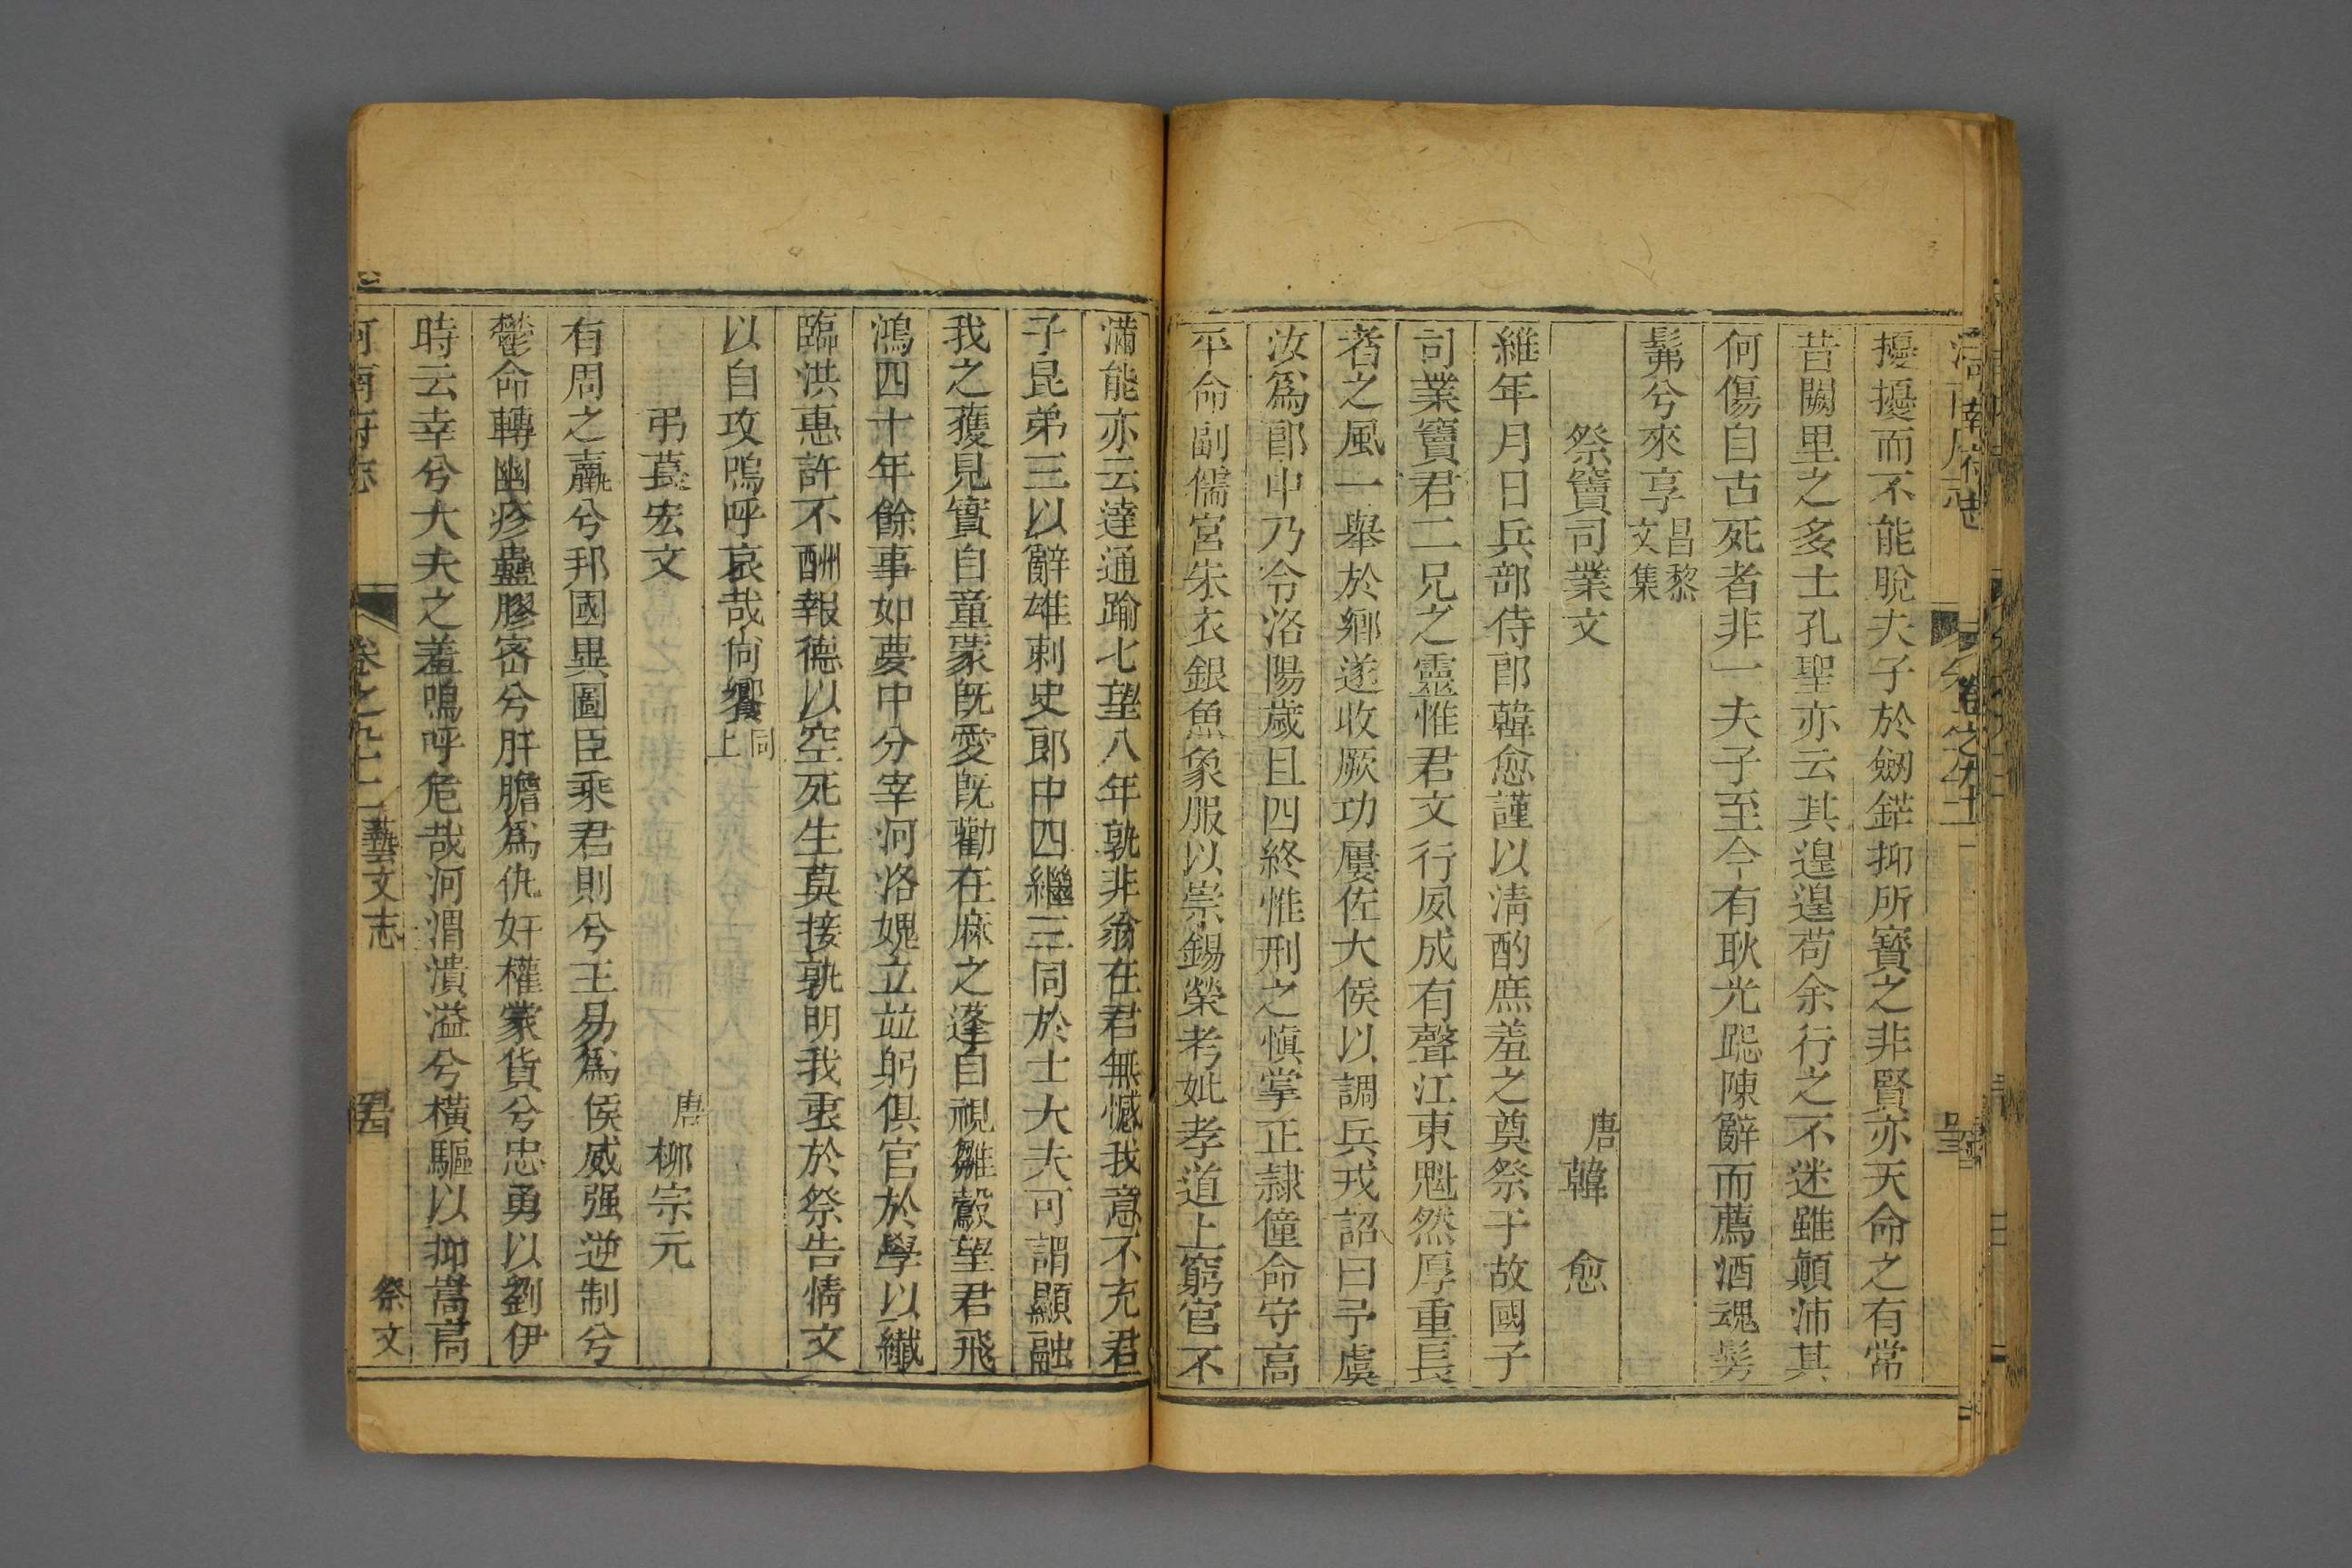 擾擾而不能脫夫子於劒鋩抑所寶之非賢亦天命之有常
昔闕里之多士孔聖亦云其遑遑苟余行之不迷雖顚沛其
何傷自古死者非一夫子至今有耿光跽陳辭而薦酒魂髣
髴兮來享昌黎文集
祭竇司業文
唐韓愈
維年月日兵部侍郎韓愈謹以淸酌庶羞之奠祭于故國子
司業竇君二兄之靈惟君文行夙成有聲江東魁然厚重長
者之風一舉於鄉遂收厥功屢佐大侯以調兵戎詔曰予虞
汝爲郎中乃令洛陽歲且四終惟刑之愼掌正隷僮命守高
平命副儒宮朱衣銀魚象服以崇錫榮考妣孝道上窮官不
滿能亦云達通踰七望八年孰非翁在君無憾我意不充君
子昆弟三以辭雄刺史郎中四繼三同於士大夫可謂顯融
我之獲見實自童蒙旣愛旣勸在麻之蓬自視雛鷇望君飛
鴻四十年餘事如夢中分宰河洛媿立竝躬俱官於學以纎
臨洪惠許不酬報德以空死生莫接孰明我衷於祭告情文
以自攻嗚呼哀哉尙饗同上
弔萇宏文
唐柳宗元
有周之羸兮邦國異圖臣乘君則兮王易爲侯威强逆制兮
鬱命轉幽疹蠱膠密兮肝膽爲仇奸權蒙貨兮忠勇以劉伊
時云幸兮大夫之羞嗚呼危哉河渭潰溢兮橫驅以抑嵩高
河南府志
卷之九十二
藝文志
祭文